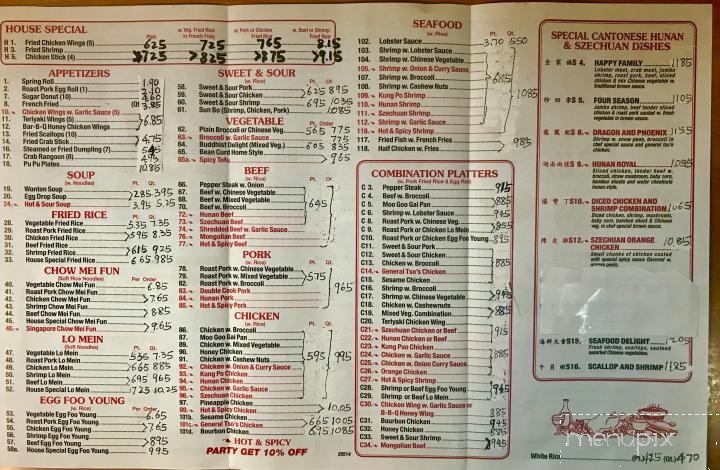 HOUSE SPECIAL
Plain
w. Veg. Fried Rice
or French Fries
w. Pork or Chicken
Fried Rice
w. Beef or Shrimp
Fried Rice
H 1. Fried Chicken Wings (5) 625 725 765 8.15
H 3. Fried Shrimp
H 5. Chicken Stick (4) 725 825 875 9.15
APPETIZERS
1. Spring Roll 1.90
2. Roast Pork Egg Roll (1)
7. Sugar Donut (10)
8. French Fried (Qt) 3.85
10. Chicken Wings w. Garlic Sauce (5)
11. Teriyaki Wings (5) 6.85
12. Bar-B-Q Honey Chicken Wings
13. Fried Scallops (10)
14. Fried Crab Stick 4.75
15. Steamed or Fried Dumpling (7)
17. Crab Rangoon (8)
18. Pu Pu Platters 10.85
SOUP
(w. Noodles)
Pt. Qt.
19. Wonton Soup
20. Egg Drop Soup 285 395
24. Hot & Sour Soup 3.95 5.25
FRIED RICE
Pt. Qt.
28. Vegetable Fried Rice 535 735
29. Roast Pork Fried Rice
30. Chicken Fried Rice 595 835
31. Beef Fried Rice
32. Shrimp Fried Rice 615 925
33. House Special Fried Rice 665 985
CHOW MEI FUN
(Soft Rice Noodles)
Per Order
40. Vegetable Chow Mei Fun 6.85
41. Roast Pork Chow Mei Fun
42. Chicken Chow Mei Fun 7.65
43. Shrimp Chow Mei Fun
44. Beef Chow Mei Fun 885
45. House Special Chow Mei Fun
46. Singapore Chow Mei Fun 965
LO MEIN
(Soft Noodles)
Pt. Qt.
47. Vegetable Lo Mein 535 735
48. Roast Pork Lo Mein
49. Chicken Lo Mein 665 885
50. Shrimp Lo Mein
51. Beef Lo Mein 695 965
52. House Special Lo Mein 725 10.25
EGG FOO YOUNG
Per Order
53. Vegetable Egg Foo Young 6.65
54. Roast Pork Egg Foo Young
55. Chicken Egg Foo Young 7.65
56. Shrimp Egg Foo Young
57. Beef Egg Foo Young 895
58a. House Special Egg Foo Young 995
SWEET & SOUR
(w. Rice)
Pt. Qt.
58. Sweet & Sour Pork
59. Sweet & Sour Chicken 625 895
60. Sweet & Sour Shrimp 695 1035
61. Sun Bo (Shrimp, Chicken, Pork) 1085
VEGETABLE
(w. Rice)
Pt. Qt.
62. Plain Broccoli or Chinese Veg. 565 775
63. Broccoli w. Garlic Sauce 775
64. Buddhist Delight (Mixed Veg.) 605 835
65. Bean Curd Home Style
65a. Spicy Tofu 965
BEEF
(w. Rice)
Pt. Qt.
66. Pepper Steak w. Onion
67. Beef w. Chinese Vegetable
68. Beef w. Mixed Vegetable
70. Beef w. Broccoli 645
72. Hunan Beef
73. Szechuan Beef
74. Shredded Beef w. Garlic Sauce
76. Mongolian Beef
77. Hot & Spicy Beef
PORK
(w. Rice)
Pt. Qt.
78. Roast Pork w. Chinese Vegetable
79. Roast Pork w. Mixed Vegetable 575
82. Roast Pork w. Broccoli
83. Double Cook Pork 965
84. Hunan Pork
85. Hot & Spicy Pork
CHICKEN
(w. Rice)
Pt. Qt.
86. Chicken w. Broccoli
87. Moo Goo Gai Pan
89. Chicken w. Mixed Vegetable
90. Honey Chicken
91. Chicken w. Cashew Nuts 595 995
92. Chicken w. Onion & Curry Sauce
93. Kung Po Chicken
94. Hunan Chicken
95. Chicken w. Garlic Sauce
96. Szechuan Chicken
97. Pineapple Chicken
99. Hot & Spicy Chicken 10.05
101b. Sesame Chicken
101c. General Tso's Chicken 665 1005
101d. Bourbon Chicken 695 1085
HOT & SPICY
PARTY GET 10% OFF
SEAFOOD
(w. Rice)
Pt. Qt.
102. Lobster Sauce 3.70 550
103. Shrimp w. Lobster Sauce
104. Shrimp w. Chinese Vegetable
105. Shrimp w. Onion & Curry Sauce
107. Shrimp w. Broccoli 685
108. Shrimp w. Cashew Nuts
109. Kung Po Shrimp 1085
110. Hunan Shrimp
111. Szechuan Shrimp
112. Shrimp w. Garlic Sauce
116. Hot & Spicy Shrimp
117. Fried Fish w. French Fries
118. Half Chicken w. Fries 985
COMBINATION PLATTERS
(w. Pork Fried Rice & Egg Roll)
C 3. Pepper Steak
C 4. Beef w. Broccoli
C 5. Moo Goo Gai Pan 885
C 6. Shrimp w. Lobster Sauce 945
C 8. Roast Pork w. Chinese Veg.
C 9. Roast Pork or Chicken Lo Mein 855
C10. Roast Pork or Chicken Egg Foo Young 895
C11. Sweet & Sour Pork
C12. Sweet & Sour Chicken
C13. Chicken w. Broccoli 885
C14. General Tso's Chicken
C15. Sesame Chicken
C16. Shrimp w. Broccoli
C17. Shrimp w. Chinese Vegetable 945
C18. Chicken w. Cashewnuts
C19. Mixed Veg. Combination 885
C20. Teriyaki Chicken Wing
C21. Szechuan Chicken or Beef 915
C22. Hunan Chicken or Beef
C23. Kung Pao Chicken
C24. Chicken w. Garlic Sauce 885
C25. Chicken w. Onion Curry Sauce
C26. Orange Chicken
C27. Hot & Spicy Shrimp
C28. Shrimp or Beef Egg Foo Young 945
C29. Shrimp or Beef Lo Mein
C30. Chicken Wing w. Garlic Sauce or
B-B-Q Honey Wing 385
C31. Bourbon Chicken 945
C32. Honey Chicken 885
C33. Sweet & Sour Shrimp
C34. Mongolian Beef 945
SPECIAL CANTONESE HUNAN
& SZECHUAN DISHES
全家福 S 4. HAPPY FAMILY 1185
Lobster meat, crab meat, jumbo
shrimp, roast pork, beef, sliced
chicken & mix Chinese vegetable w.
traditional brown sauce.
炒四季 S 5. FOUR SEASON 1105
Jumbo shrimp, beef tender sliced
chicken & roast pork sauteed w. fresh
vegetable in brown sauce.
龍鳳配 S 8. DRAGON AND PHOENIX 1155
Shrimp w. snow peas, broccoli in
chef special sauce and general tso's
chicken.
湖南雨樣 S 9. HUNAN ROYAL 1095
Sliced chicken, tender beef w.
broccoli, straw mushroom, baby corn,
bamboo shoots and water chestnuts
hunan style.
爆雙丁 S10. DICED CHICKEN AND
SHRIMP COMBINATION 1065
Diced chicken, shrimp, mushroom,
baby corn, bamboo shoot & Chinese
veg. in chef special brown sauce.
陳皮雞 S12. SZECHUAN ORANGE
CHICKEN 10.85
Small chunks of chicken coated
with special spicy sauce flavored
w. orange peel.
海鮮大會 S15. SEAFOOD DELIGHT 1205
Fresh shrimp, scallops, seafood
assorted Chinese vegetables.
干貝蝦 S16. SCALLOP AND SHRIMP 1185
menupix
White Rice (Pt.) 425 (Qt.) 470